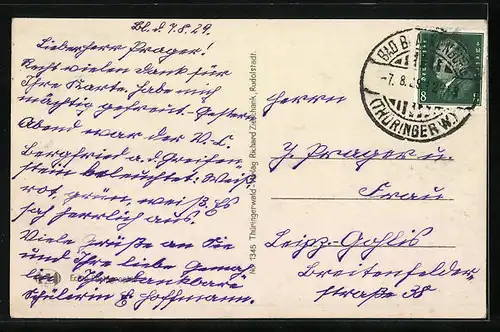 Bl. d. 7.8.29.
Lieber Herr Prager!
Recht vielen Dank für
Ihre Karte. Habe mich
mächtig gefreut. Gestern
Abend war der V.C.
Bergfried a. d. Greifen-
stein beleuchtet. Weiß,
rot, grün, weiß. Es
sah herrlich aus.
Viele Grüße an Sie
und Ihre liebe Gemah-
lin Ihre dankbare
Schülerin E. Hoffmann.
No. 1345 Thüringerwald-Verlag Richard Zieschank, Rudolstadt.
BAD BLANKENBURG
-7.8.29
(THÜRINGERW.)
8
Herrn
J. Prager u.
Frau
Leipzig-Gohlis
Breitenfelder-
straße 38